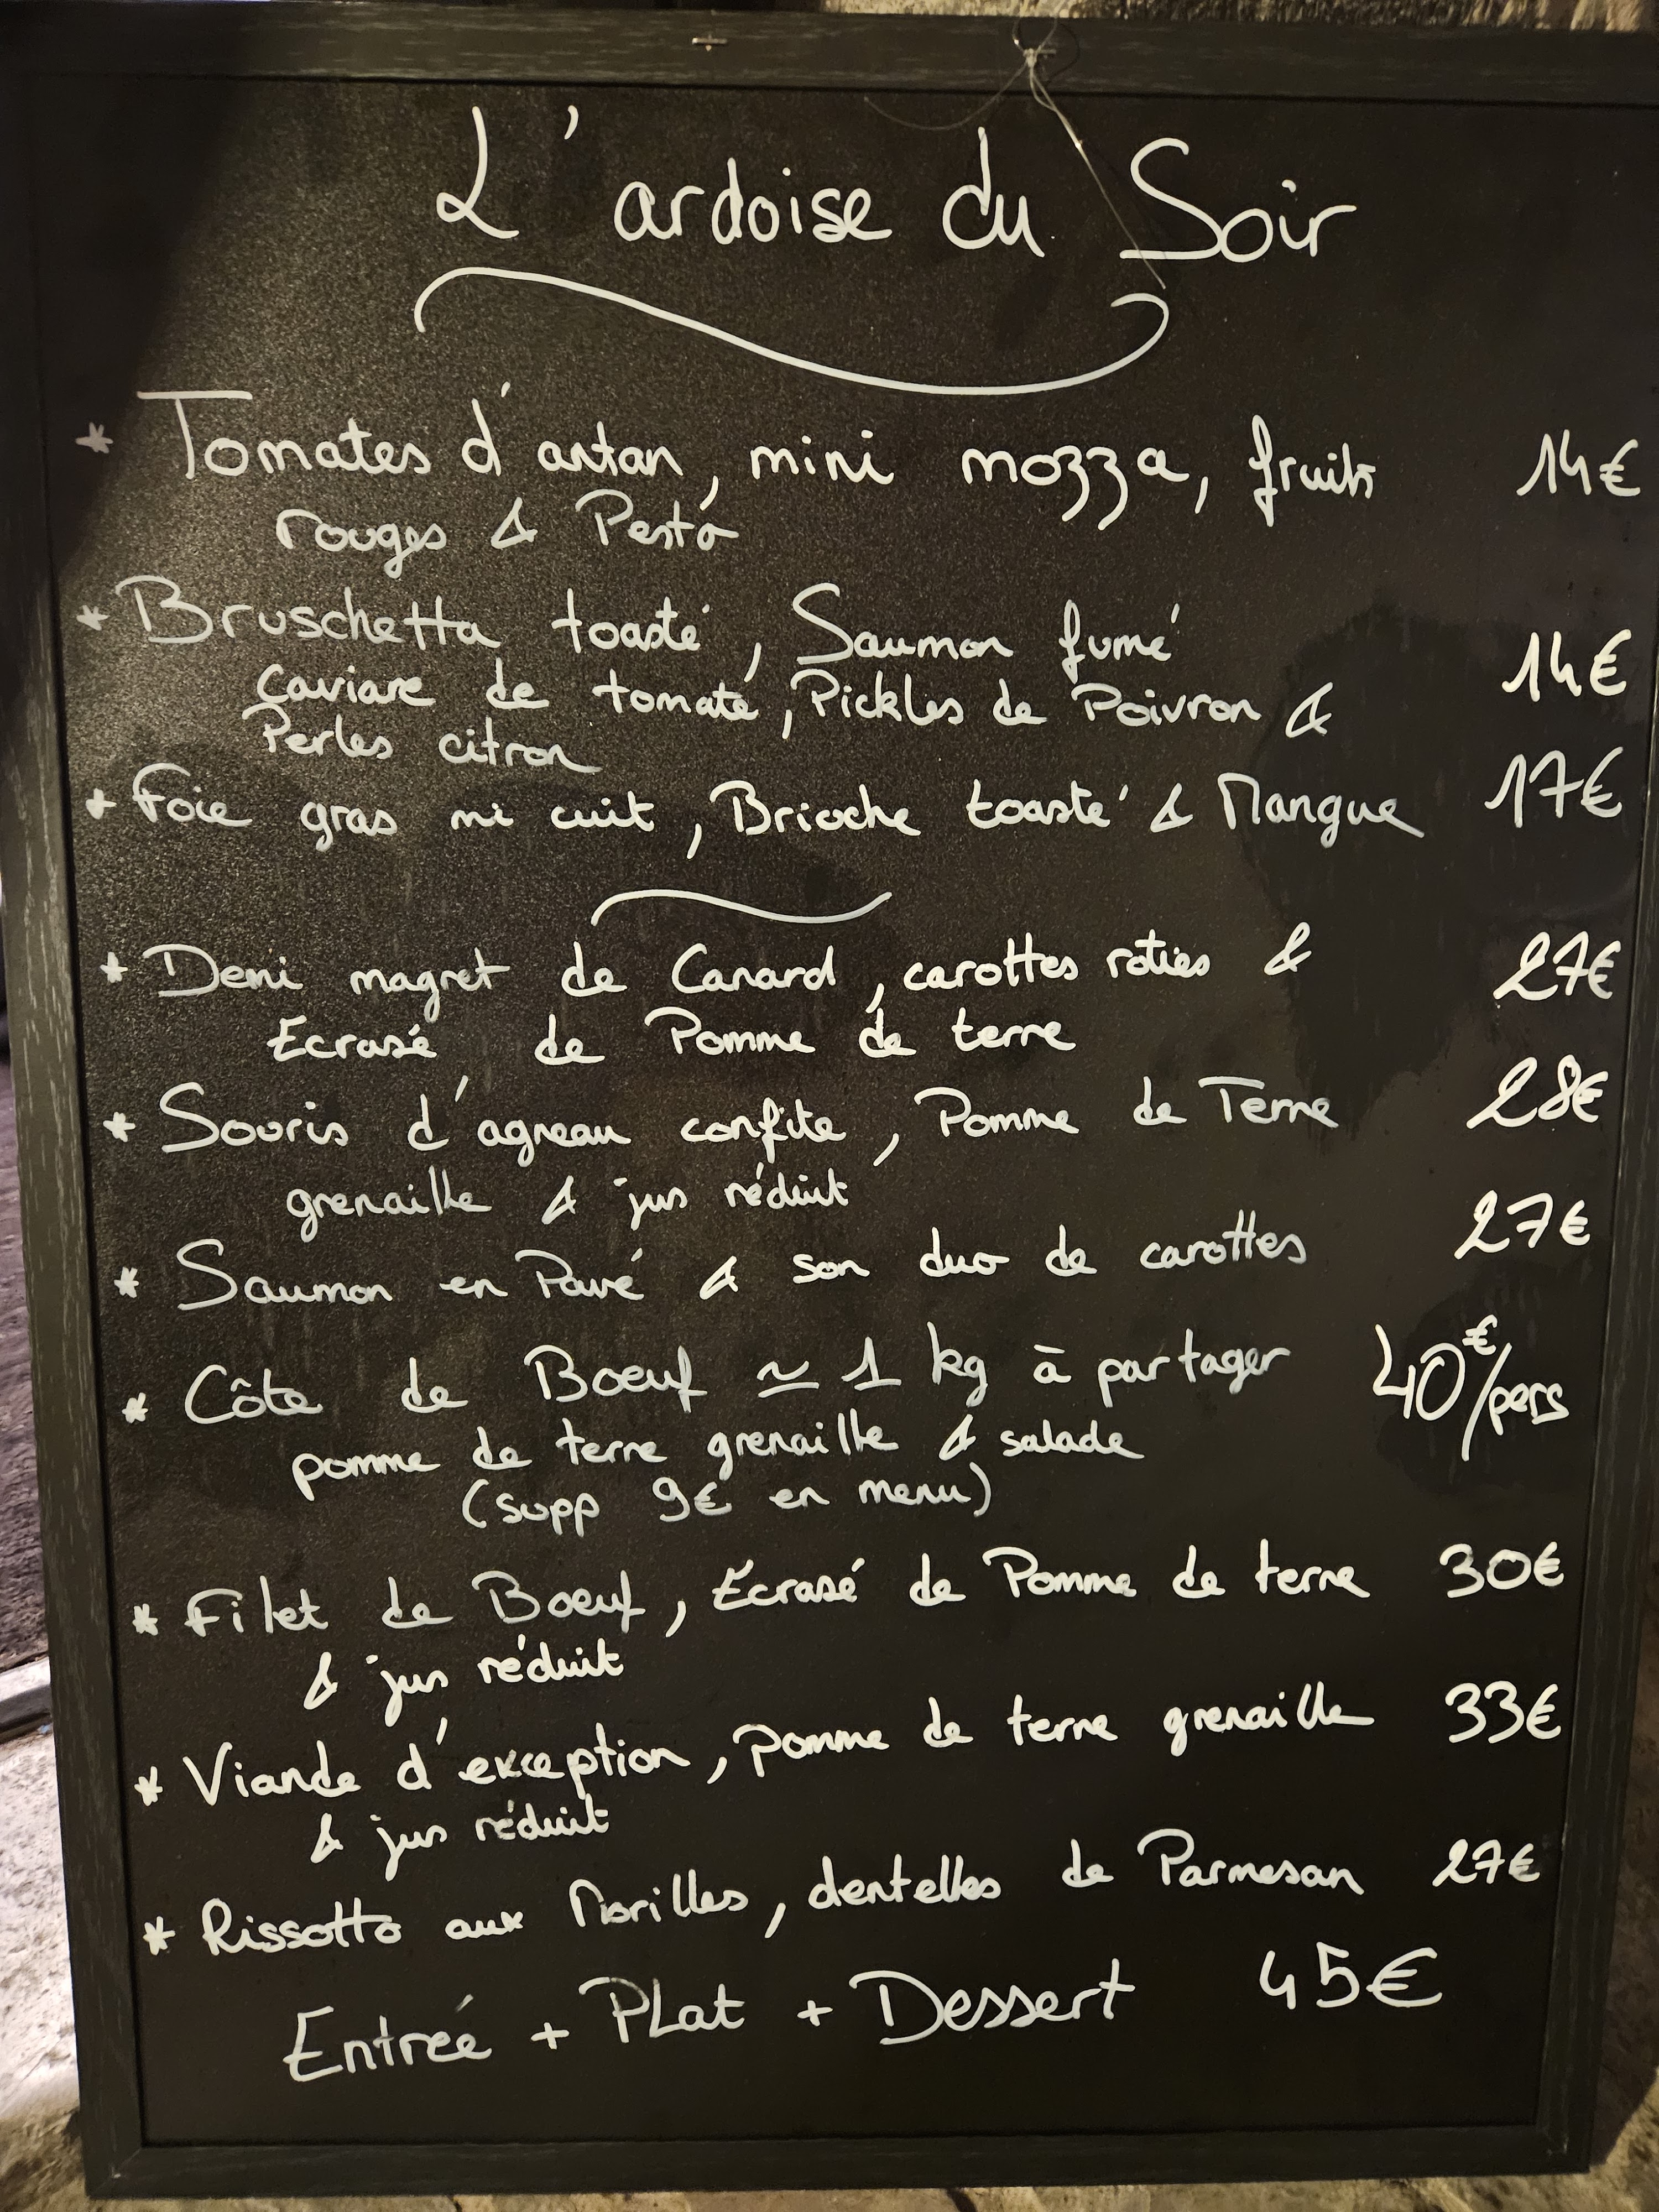 L'ardoise du Soir
* Tomates d'antan, mini mozza, fruits 14€
rouges & Pesto
* Bruschetta toasté, Saumon fumé
caviare de tomate, Pickles de Poivron & 14€
Perles citron
* Foie gras mi cuit, Brioche toasté & Mangue 17€
* Demi magret de Canard, carottes roties & 27€
Ecrasé de Pomme de terre
* Souris d'agneau confite, Pomme de Terre 28€
grenaille & jus réduit
* Saumon en Pavé & son duo de carottes 27€
* Côte de Boeuf ≃ 1 kg à partager 40€/pers
pomme de terre grenaille & salade
(supp 9€ en menu)
* Filet de Boeuf, Ecrasé de Pomme de terre 30€
& jus réduit
* Viande d'exception, pomme de terre grenaille 33€
& jus réduit
* Rissotto aux Morilles, dentelles de Parmesan 27€
Entrée + PLat + Dessert 45€